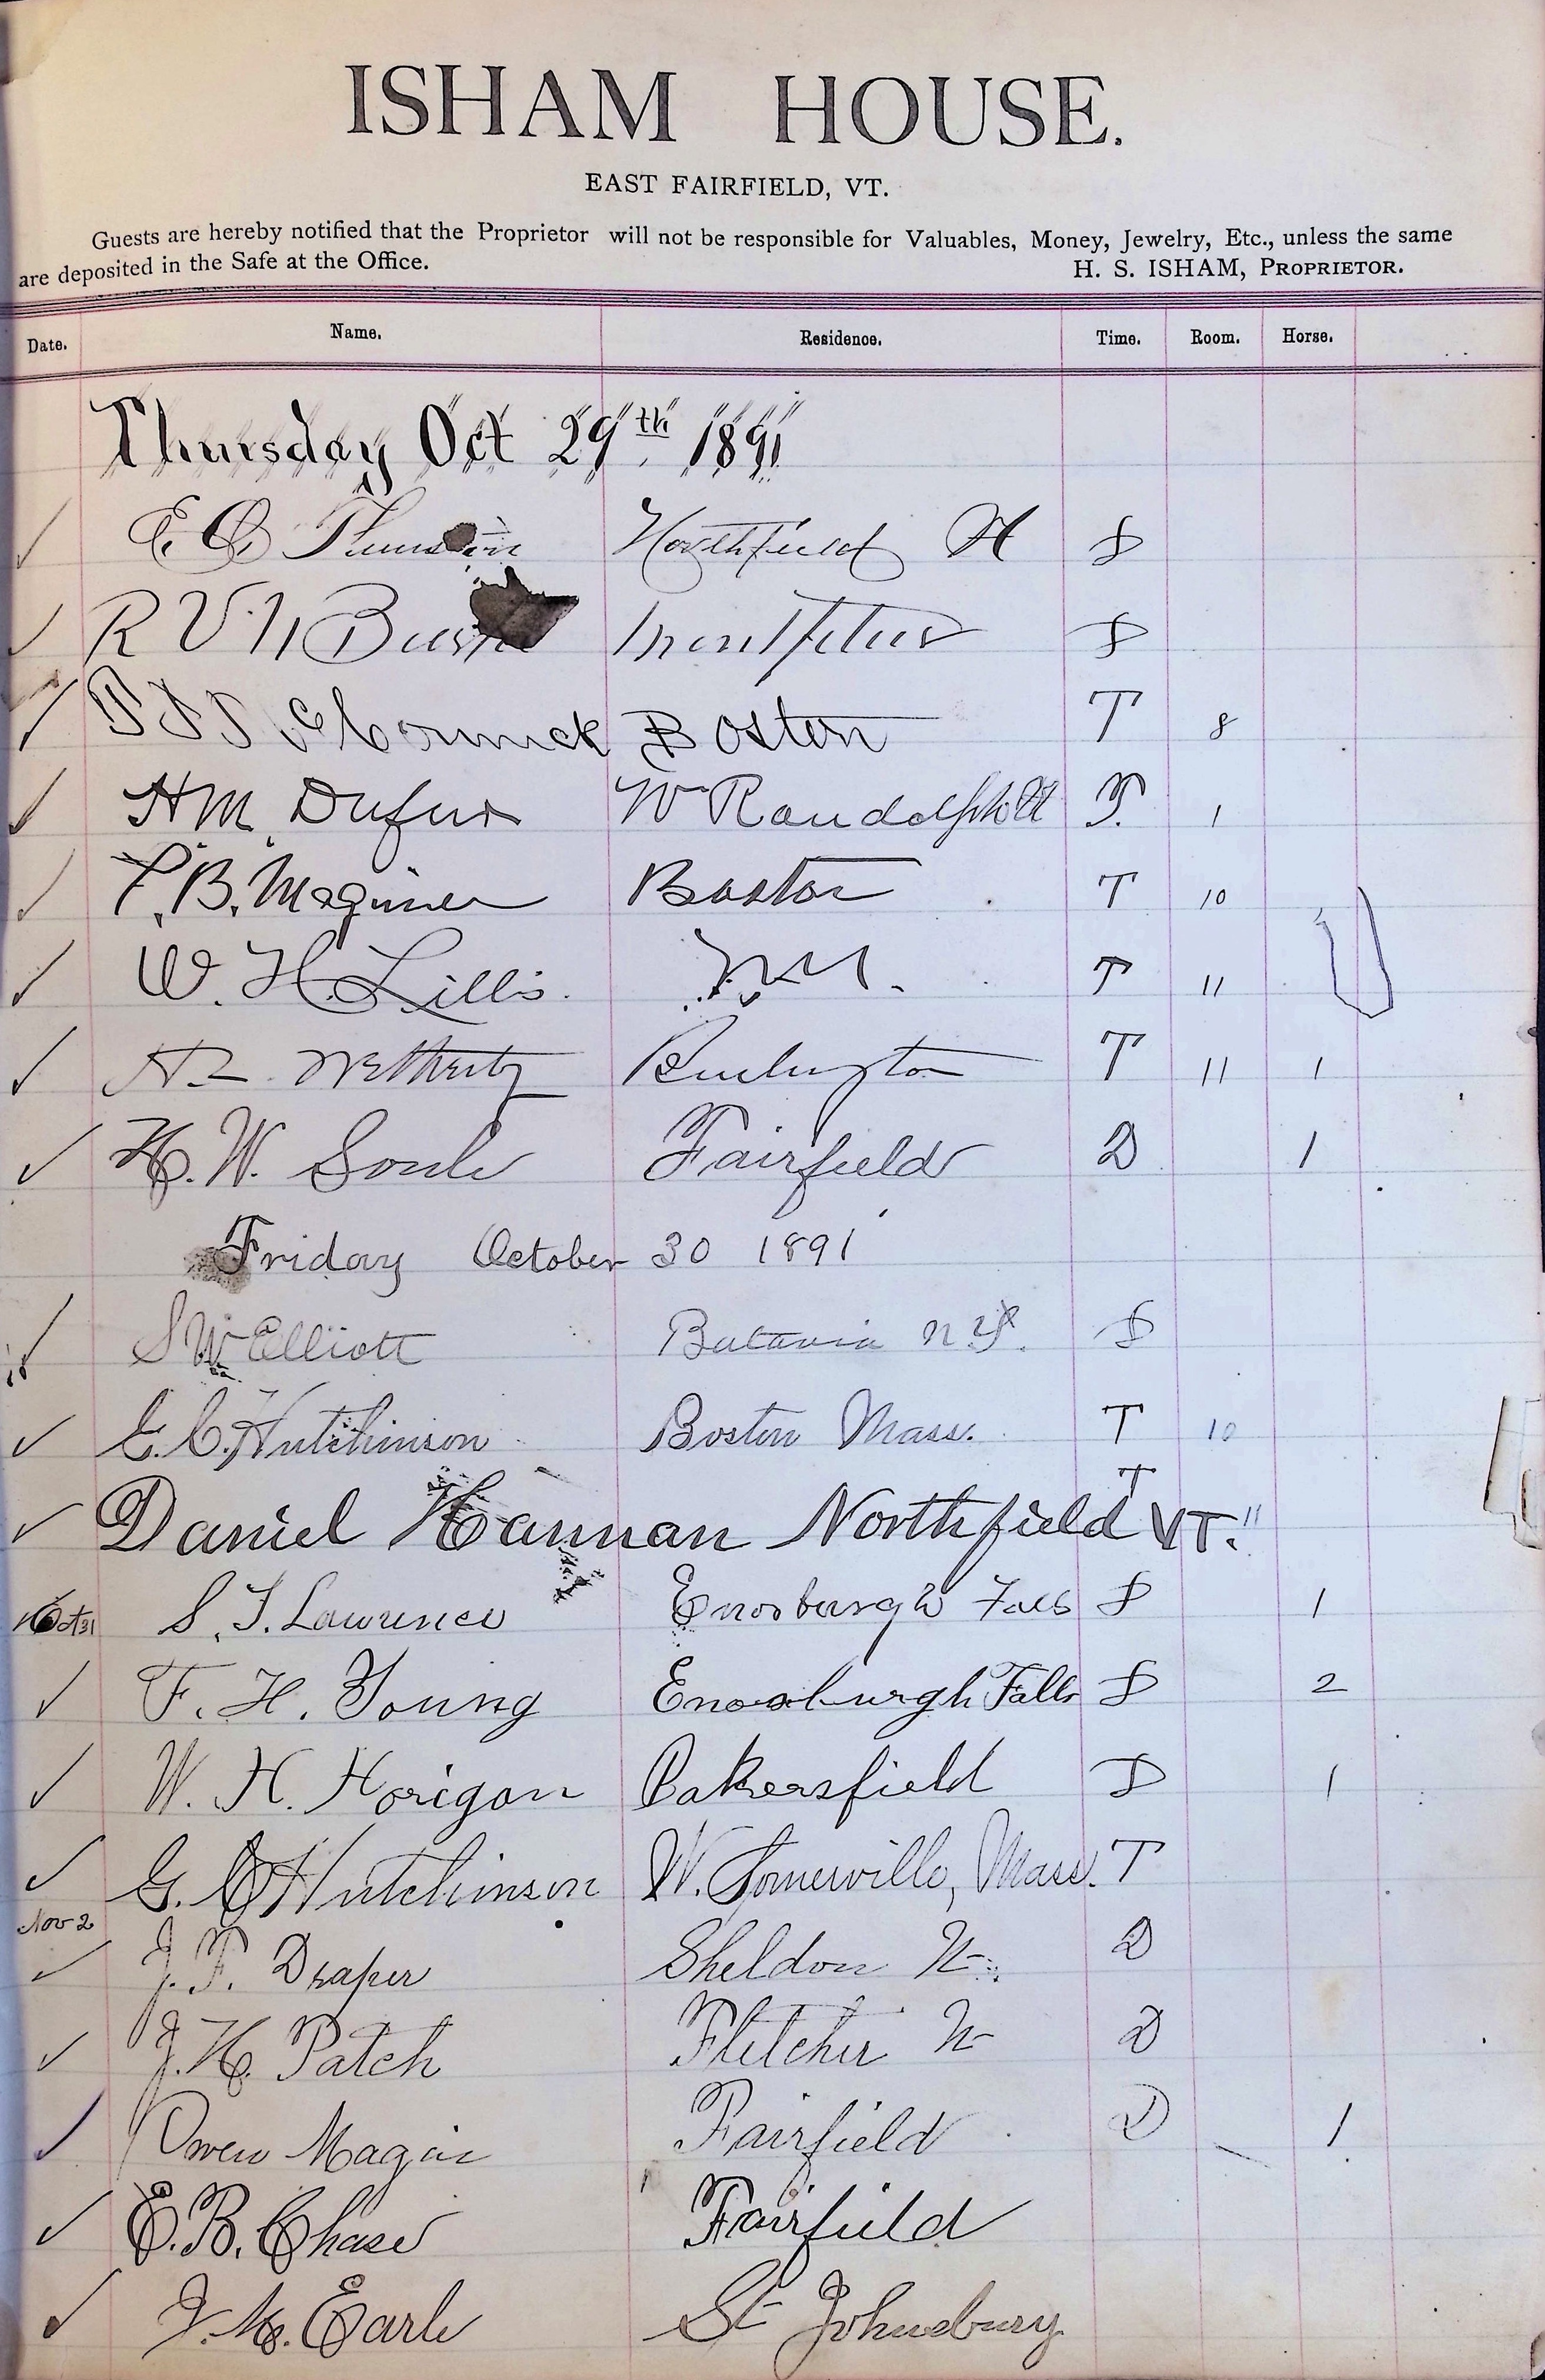 ISHAM HOUSE.
EAST FAIRFIELD, VT.
Guests are hereby notified that the Proprietor will not be responsible for Valuables, Money, Jewelry, Etc., unless the same
are deposited in the Safe at the Office. H. S. ISHAM, PROPRIETOR.
Date. Name. Residence. Time. Room. Horse.
Thursday Oct 29th 1891
✓ E. Northfield
✓ R V N Montpelier
✓ McCormick Boston T 8
✓ H M Dufur W Randolph Vt T. 1
✓ B. Boston T 10
✓ W. H. Lillis. N.Y. T 11
✓ Burlington T 11 1
✓ H. W. Soule Fairfield D 1
Friday October 30 1891
✓ S W Elliott Batavia N.Y. D
✓ G. C. Hutchinson Boston Mass. T 10
✓ Daniel Hannan Northfield VT. T 11
✓ Oct 31 S. J. Lawrence Enosburgh Falls D 1
✓ F. H. Young Enosburgh Falls D 2
✓ W. H. Horigan Bakersfield D 1
✓ G. C. Hutchinson W. Somerville, Mass. T
Nov 2
✓ J. F. Draper Sheldon Vt D
✓ J. H. Patch Fletcher Vt D
✓ Owen Magin Fairfield D 1
✓ E. B. Chase Fairfield
✓ J. M. Earle St Johnsbury